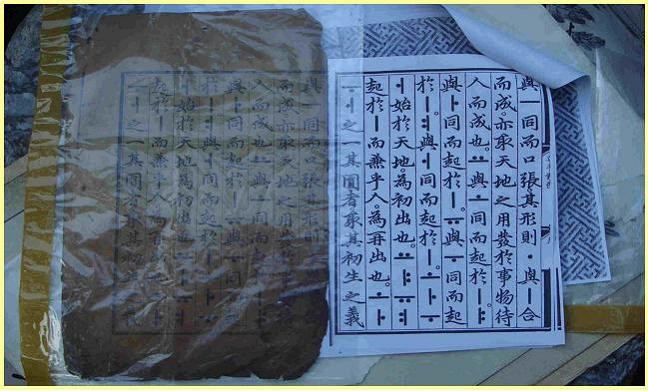 與ㅡ同而口張其形則ㆍ與ㅣ合
而成。亦取天地之用發於事物待
人而成也。ㅛ與ㅗ同而起於ㅣ。ㅑ
與ㅏ同而起於ㅣ。ㅠ與ㅜ同而起
於ㅣ。ㅕ與ㅓ同而起於ㅣ。ㅗㅏㅜ
ㅓ始於天地。爲初出也。ㅛㅑㅠㅕ
起於ㅣ而兼乎人。爲再出也。ㅗㅏ
ㅜㅓ之一其圓者取其初生之義
與ㅡ同而口張其形則
而成亦取天地之用發於事
人而成也ㅛ與ㅗ同而起於
與ㅏ同而起於ㅣㅠ與ㅜ同而起
於ㅣㅕ與ㅓ同而起於ㅣㅗㅏㅜ
ㅓ始於天地爲初出也ㅛㅑㅠㅕ
起於ㅣ而兼乎人爲再出也ㅗㅏ
ㅜㅓ之一其圓者取其初生之義